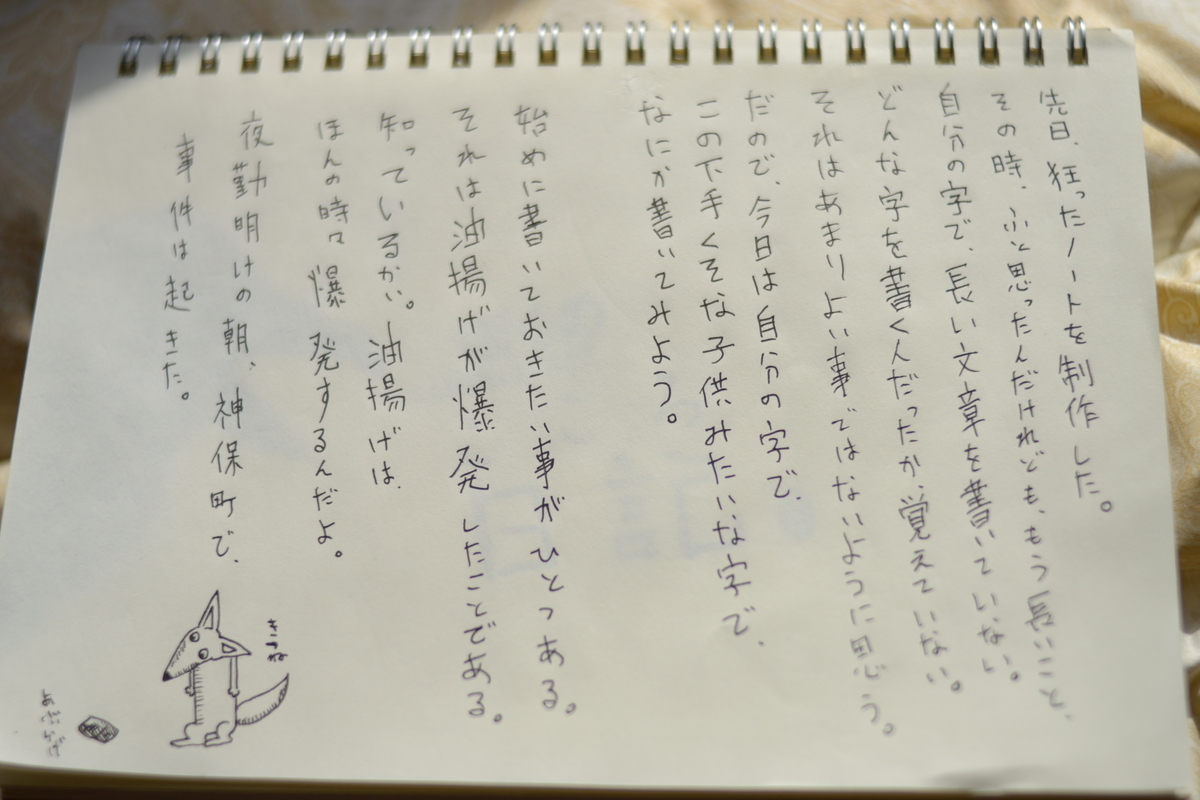 先日、狂ったノートを制作した。
その時、ふと思ったんだけれども、もう長いこと、
自分の字で、長い文章を書いていない。
どんな字を書く人だったか、覚えていない。
それはあまりよい事ではないように思う。
だので、今日は自分の字で、
この下手くそな子供みたいな字で、
なにか書いてみよう。
始めに書いておきたい事がひとつある。
それは油揚げが爆発したことである。
知っているかい。油揚げは、
ほんの時々爆発するんだよ。
夜勤明けの朝、神保町で、
事件は起きた。
きつね
あぶらあげ